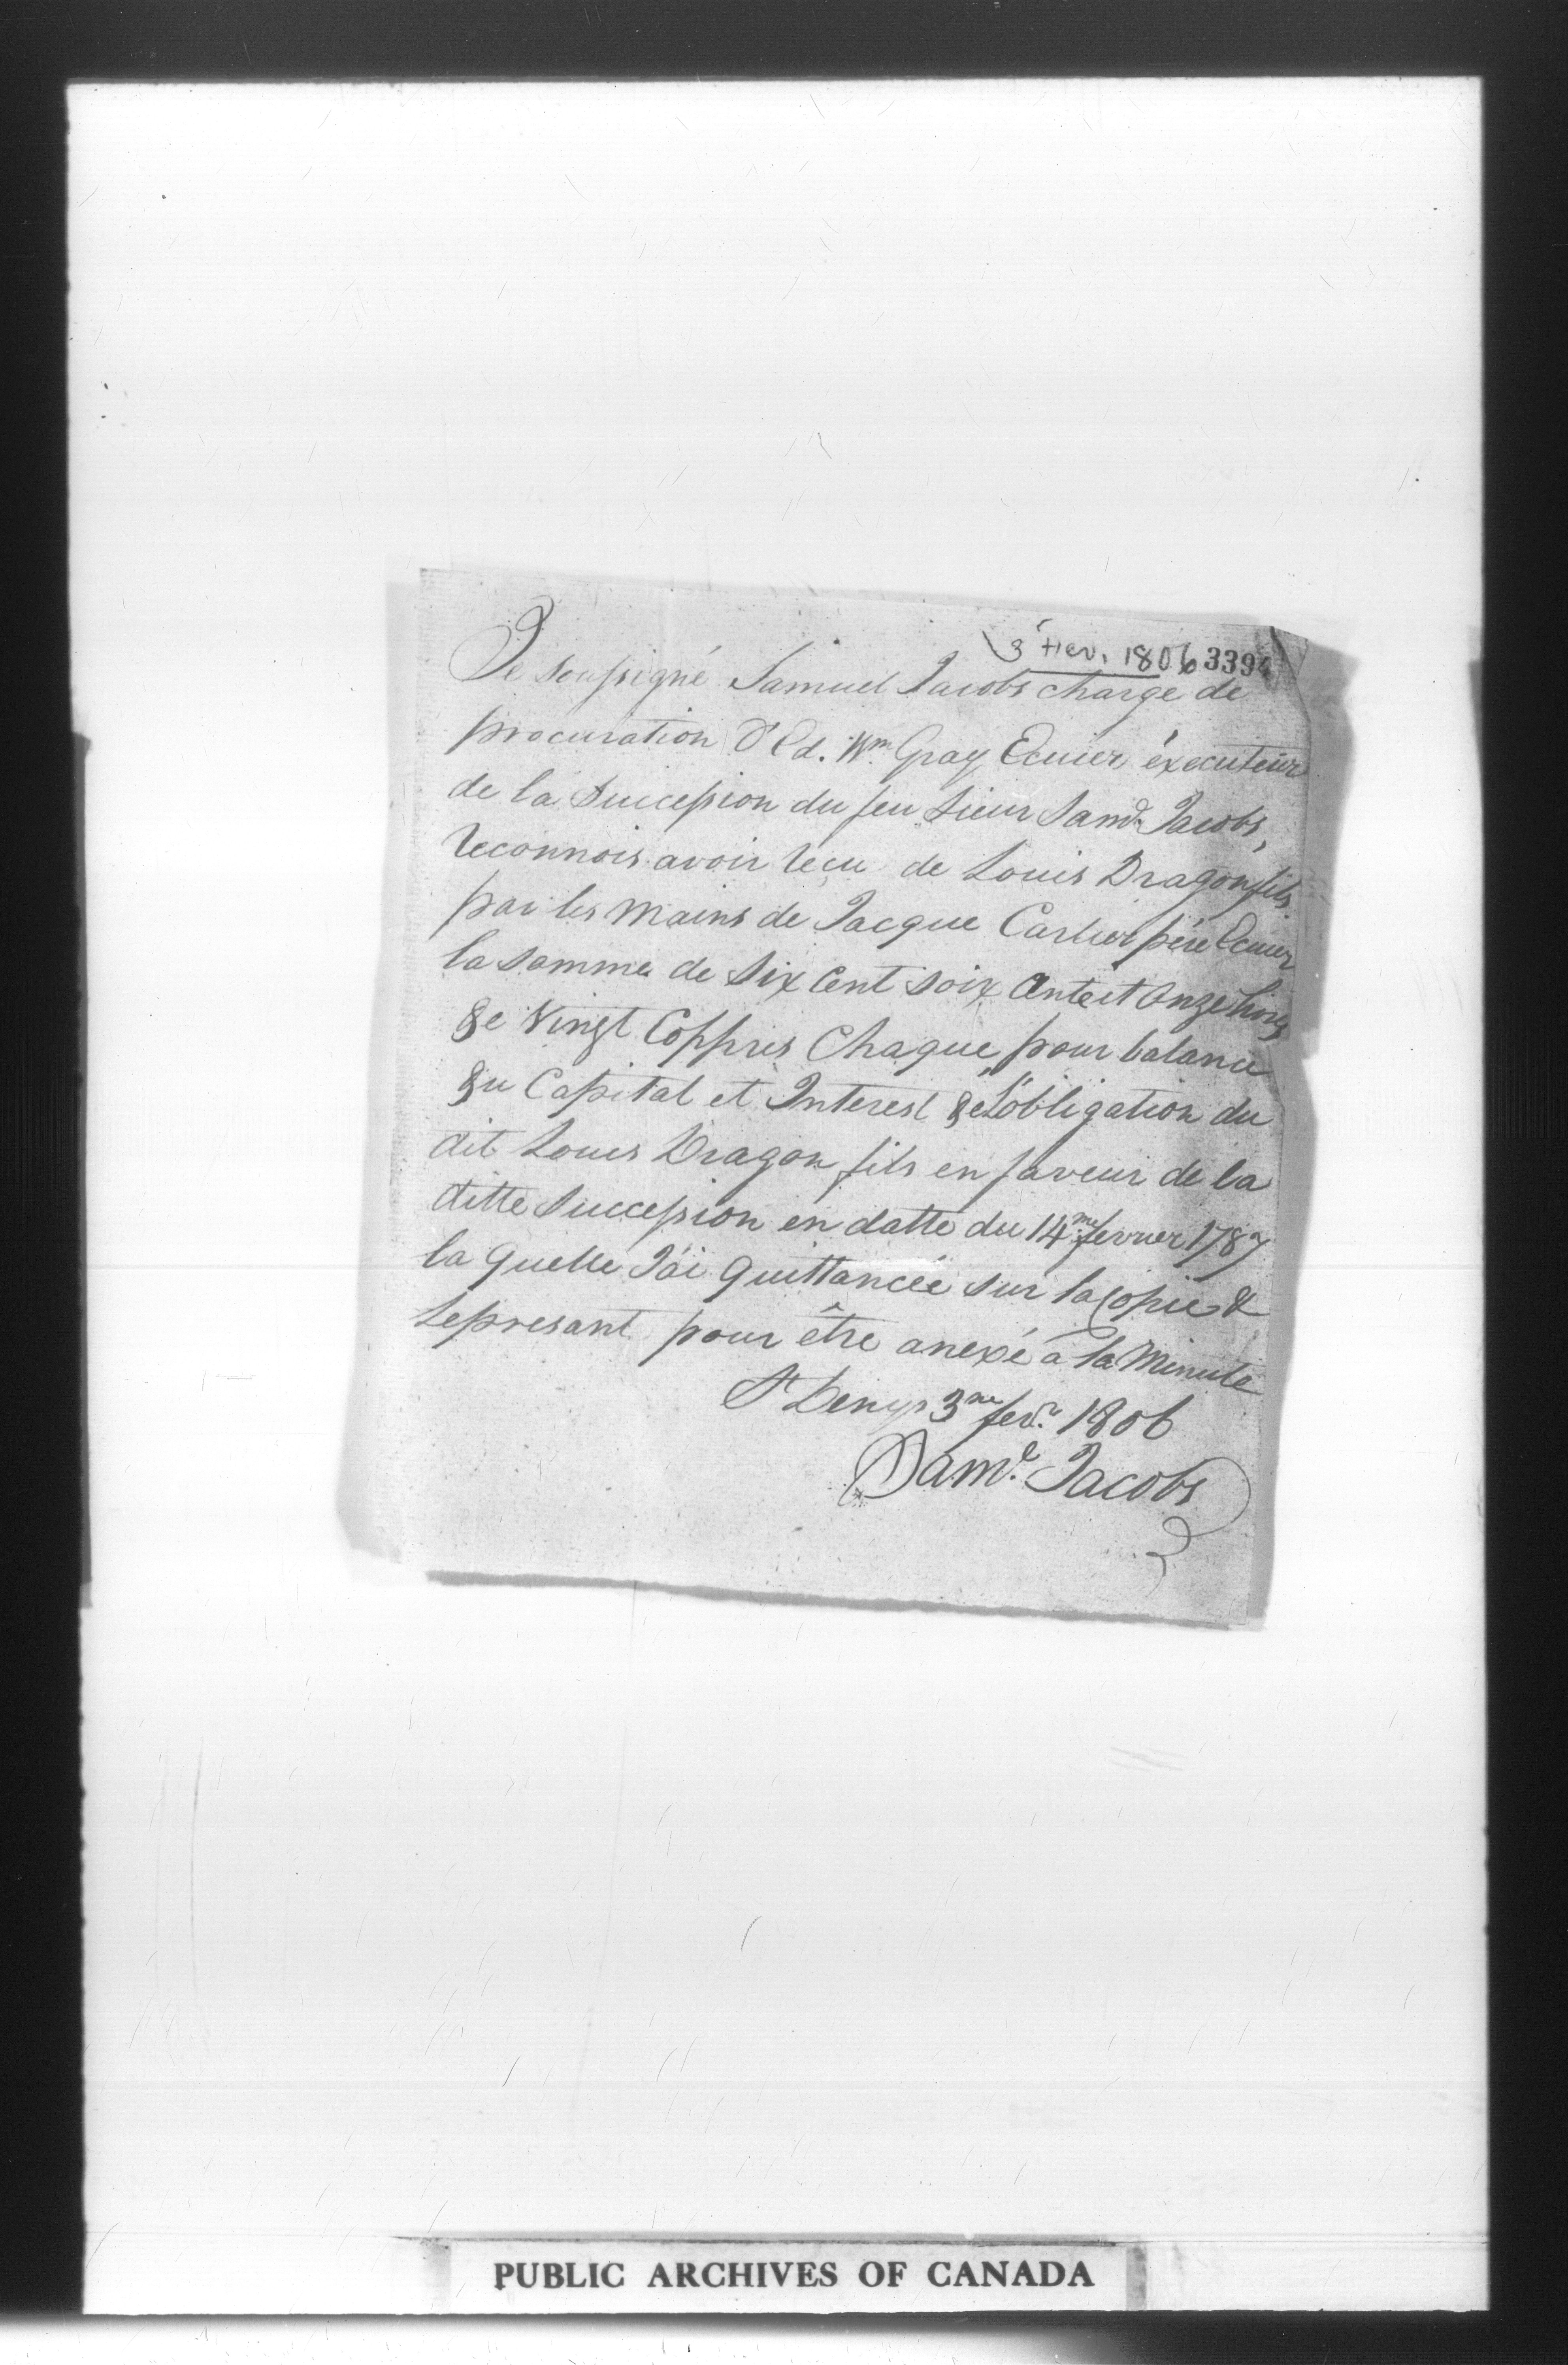 3 Fev. 1806 3394
Je soussigné Samuel Jacobs charge de
procuration d'Ed. Wm. Gray Ecuier éxecuteur
de la Succession du feu Sieur Saml. Jacobs,
reconnois avoir reçu de Louis Dragon fils
par les mains de Jacque Cartier père Ecuier
la somme de Six Cent soix ante et Onze livres
de Vingt Coppres Chaque pour balance
du Capital et Interest de L'obligation du
dit Louis Dragon fils en faveur de la
ditte Succession en datte du 14me. fevrier 1787
la quelle J'ai quittancée sur la copie &
le presant pour être anexé a la Minute
St Denys 3me fevr. 1806
Saml. Jacobs
PUBLIC ARCHIVES OF CANADA